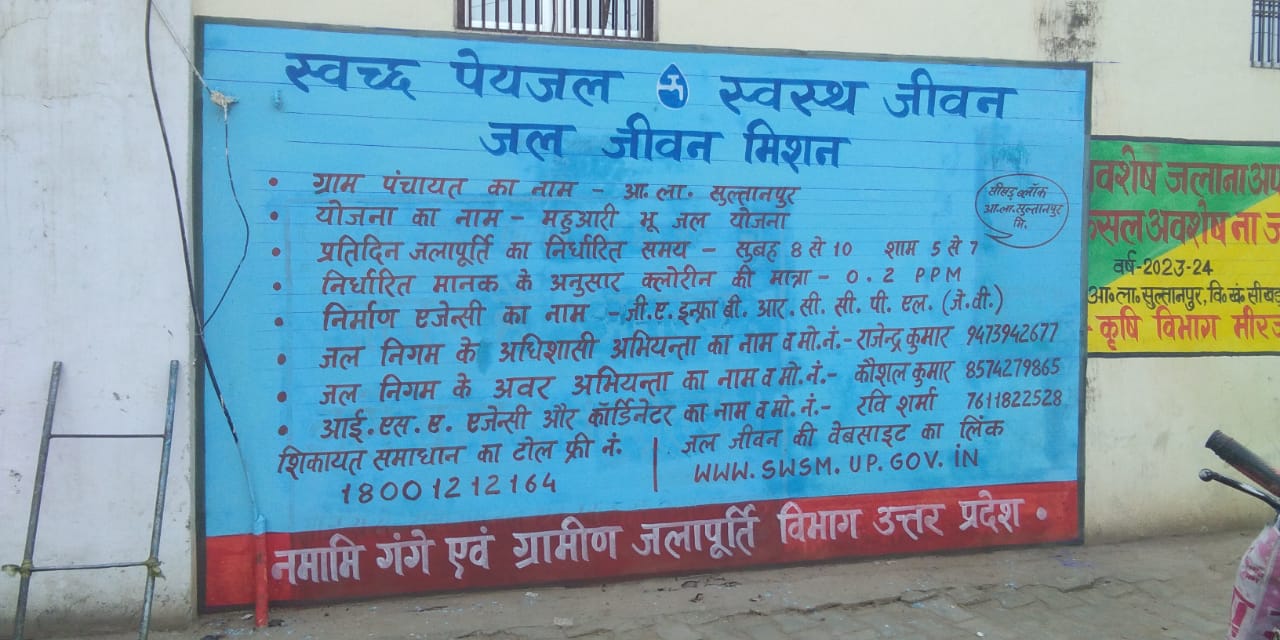 स्वच्छ पेयजल स्वस्थ जीवन
जल जीवन मिशन
• ग्राम पंचायत का नाम - आ.ला. सुल्तानपुर
• योजना का नाम - महुआरी भू जल योजना
• प्रतिदिन जलापूर्ति का निर्धारित समय - सुबह 8 से 10 शाम 5 से 7
• निर्धारित मानक के अनुसार क्लोरीन की मात्रा - 0.2 PPM
• निर्माण एजेन्सी का नाम - जी.ए. इन्फ्रा बी. आर. सी. सी. पी. एल. (जे.वी.)
• जल निगम के अधिशासी अभियन्ता का नाम व मो.नं.- राजेन्द्र कुमार 9473942677
• जल निगम के अवर अभियन्ता का नाम व मो. नं.- कौशल कुमार 8574279865
• आई.एस.ए. एजेन्सी और कॉर्डिनेटर का नाम व मो. नं.- रवि शर्मा 7611822528
शिकायत समाधान का टोल फ्री नं.
18001212164
जल जीवन की वेबसाइट का लिंक
WWW.SWSM.UP.GOV.iN
नमामि गंगे एवं ग्रामीण जलापूर्ति विभाग उत्तर प्रदेश •
सीखड़ ब्लॉक
आ.ला.सुल्तानपुर
मि.
वशेष जलाना अप
सल अवशेष ना ज
वर्ष-2023-24
आ.ला. सुल्तानपुर, वि.खं. सीखड़
कृषि विभाग मीरज